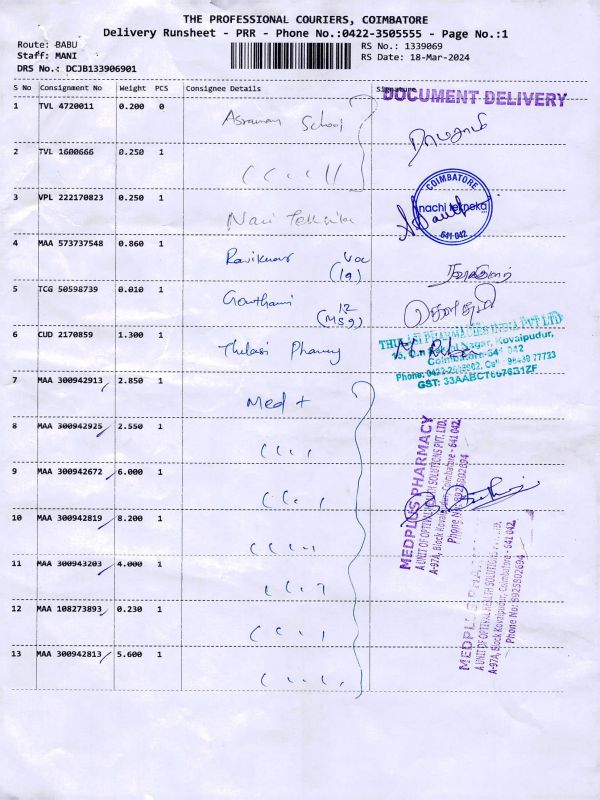 THE PROFESSIONAL COURIERS, COIMBATORE
Delivery Runsheet - PRR - Phone No.:0422-3505555 - Page No.:1
Route: BABU
Staff: MANI
DRS No.: DCJB133906901
RS No.: 1339069
RS Date: 18-Mar-2024
S No Consignment No Weight PCS Consignee Details Signature
DOCUMENT DELIVERY
1 TVL 4720011 0.200 0 School
2 TVL 1600666 0.250 1
3 VPL 222170823 0.250 1
COIMBATORE
nachi tekneka
641 042
4 MAA 573737548 0.860 1 Ravikumar
(19)
5 TCG 50598739 0.010 1 Gowthami 12
(MSG)
6 CUD 2170859 1.300 1 Thulasi Pharmy
THULASI PHARMACIES INDIA PVT LTD
Nagar, Kovaipudur,
Coimbatore-641 042
GST:
7 MAA 300942913 2.850 1 Med +
8 MAA 300942925 2.550 1
9 MAA 300942672 6.000 1
10 MAA 300942819 8.200 1
11 MAA 300943203 4.000 1
12 MAA 108273893 0.230 1
13 MAA 300942813 5.600 1
MEDPLUS PHARMACY
A UNIT OF OPTIVAL HEALTH SOLUTIONS PVT. LTD.
A-97A, Block Kovaipudur, Coimbatore - 641 042
Phone No: 8925802894
MEDPLUS PHARMACY
A UNIT OF OPTIVAL HEALTH SOLUTIONS PVT. LTD.
A-97A, Block Kovaipudur, Coimbatore - 641 042
Phone No: 8925802894